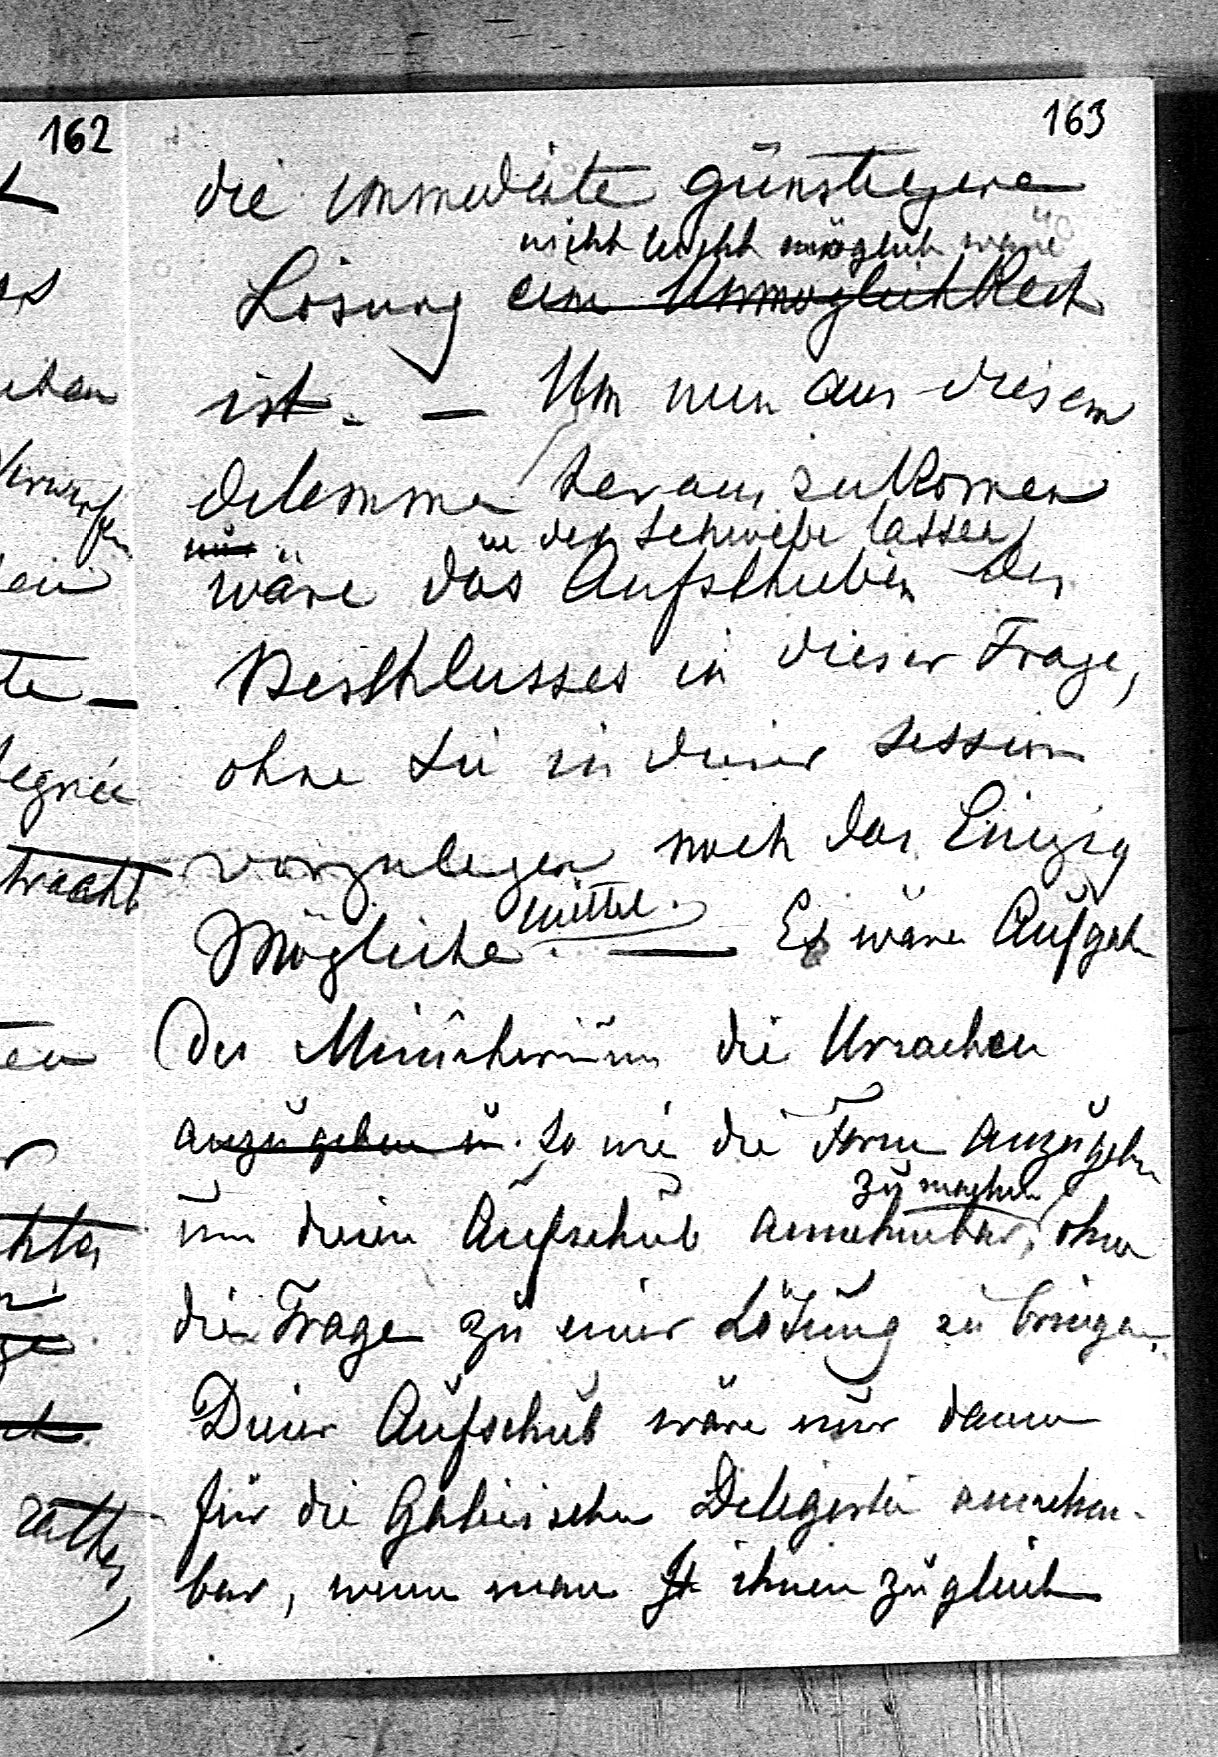 162
163
die immediate günstigere
nicht leicht möglich wäre
Lösung eine Unmöglichkeit
ist. — Um nun aus diesem
dilemma herauszukomen
nur in der Schwebe lassen
wäre das Aufschieben des
Beschlusses in dieser Frage,
ohne Sie in dieser Session
vorzulegen noch das Einzig
Mögliche Mittel. — Es wäre Aufgabe
des Ministeriums die Ursachen
anzugeben u. so wie die Form anzugeben
zu machen
um diesen Aufschub annehmbar, ohne
die Frage zu einer Lösung zu bringen.
Dieser Aufschub wäre nur dann
für die Galizischen Delegirten annehm-
bar, wenn man ihnen zugleich